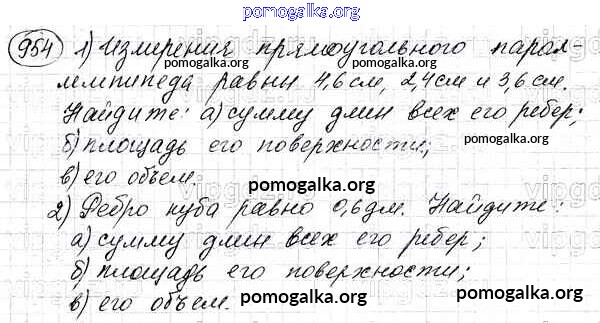 pomogalka.org
954 1) Измерения прямоугольного парал-
лелепипеда равны 4,6 см, 2,4 см и 3,6 см.
Найдите: а) сумму длин всех его ребер;
pomogalka.org
б) площадь его поверхности;
pomogalka.org
в) его объем.
pomogalka.org
2) Ребро куба равно 0,6 дм. Найдите:
а) сумму длин всех его ребер;
pomogalka.org
б) площадь его поверхности;
в) его объем.
pomogalka.org
pomogalka.org